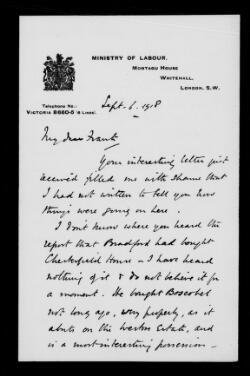 MINISTRY OF LABOUR,
MONTAGU HOUSE
WHITEHALL,
LONDON, S.W.
Telephone No.:
VICTORIA 8660-5 (6 LINES).
Sept. 6. 1918
My dear Frank
Your interesting letter just
received filled me with shame that
I had not written to tell you how
things were going on here.
I don't know where you heard the
report that Bradford had bought
Chesterfield House - I have heard
nothing of it & do not believe it for
a moment. He bought Boscobel
not long ago, very properly, as it
abuts on the Weston Estate, and
is a most interesting possession -